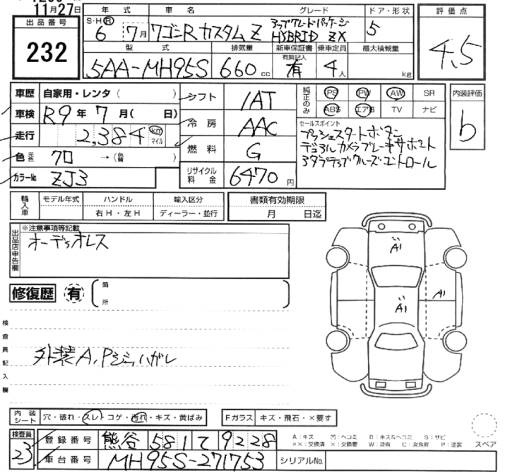 11月27日
出品番号
232
年式 車名 グレード ドア・形状
S・H・R 6 7月 ワゴンRカスタムZ アップグレードパッケージ HYBRID ZX 5
型式 排気量 新車保証書 乗車定員 最大積載量
5AA-MH95S 660cc 有 4人 kg
評価点
4.5
車歴 自家用・レンタ( )
車検 R9年 7月( 日)
走行 2,384 km マイル
色 元色 クロ →(替 )
カラーNo ZJ3
シフト IAT
冷房 AAC
燃料 G
リサイクル料金 6470円
純正のみ PS PW AW SR
ABS エアB TV ナビ
セールスポイント
プッシュスタートボタン
デュアルカメラブレーキサポート
アダプティブクルーズコントロール
内装評価
b
輸入車 モデル年式 ハンドル 輸入区分
右H・左H ディーラー・並行
書類有効期限
月 日迄
出品店申告欄
※注意事項等記載
オーディオレス
修復歴 有 箇所
検査員記入欄
外装A,Pジミ,ハガレ
A1
A1
A1
内装シート 穴・破れ・スレ・コゲ・汚れ・キズ・黄ばみ
Fガラス キズ・飛石・×要す
検査員
23
登録番号 熊谷 581 て 9228
車台番号 MH95S-271753
シリアルNo.
スペア